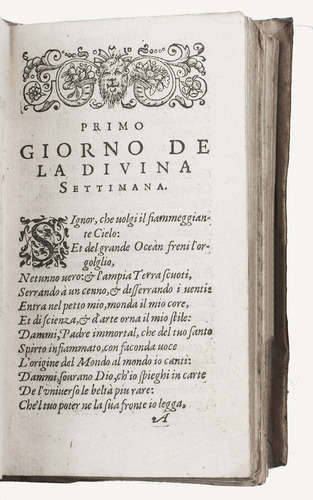 PRIMO
GIORNO DE
LA DIVINA
SETTIMANA.
SIgnor, che uolgi il fiammeggian-
te Cielo:
Et del grande Oceàn freni l'or-
golglio,
Netunno uero: & l'ampia Terra scuoti,
Serrando à un cenno, & disserrando i uenti:
Entra nel petto mio, monda il mio core,
Et di scienza, & d'arte orna il mio stile:
Dammi, Padre immortal, che del tuo santo
Spirto infiammato, con faconda uoce
L'origine del Mondo al mondo io canti:
Dammi, sourano Dio, ch'io spieghi in carte
De l'vniuerso le beltà piu rare:
Che'l tuo poter ne la sua fronte io legga,
A